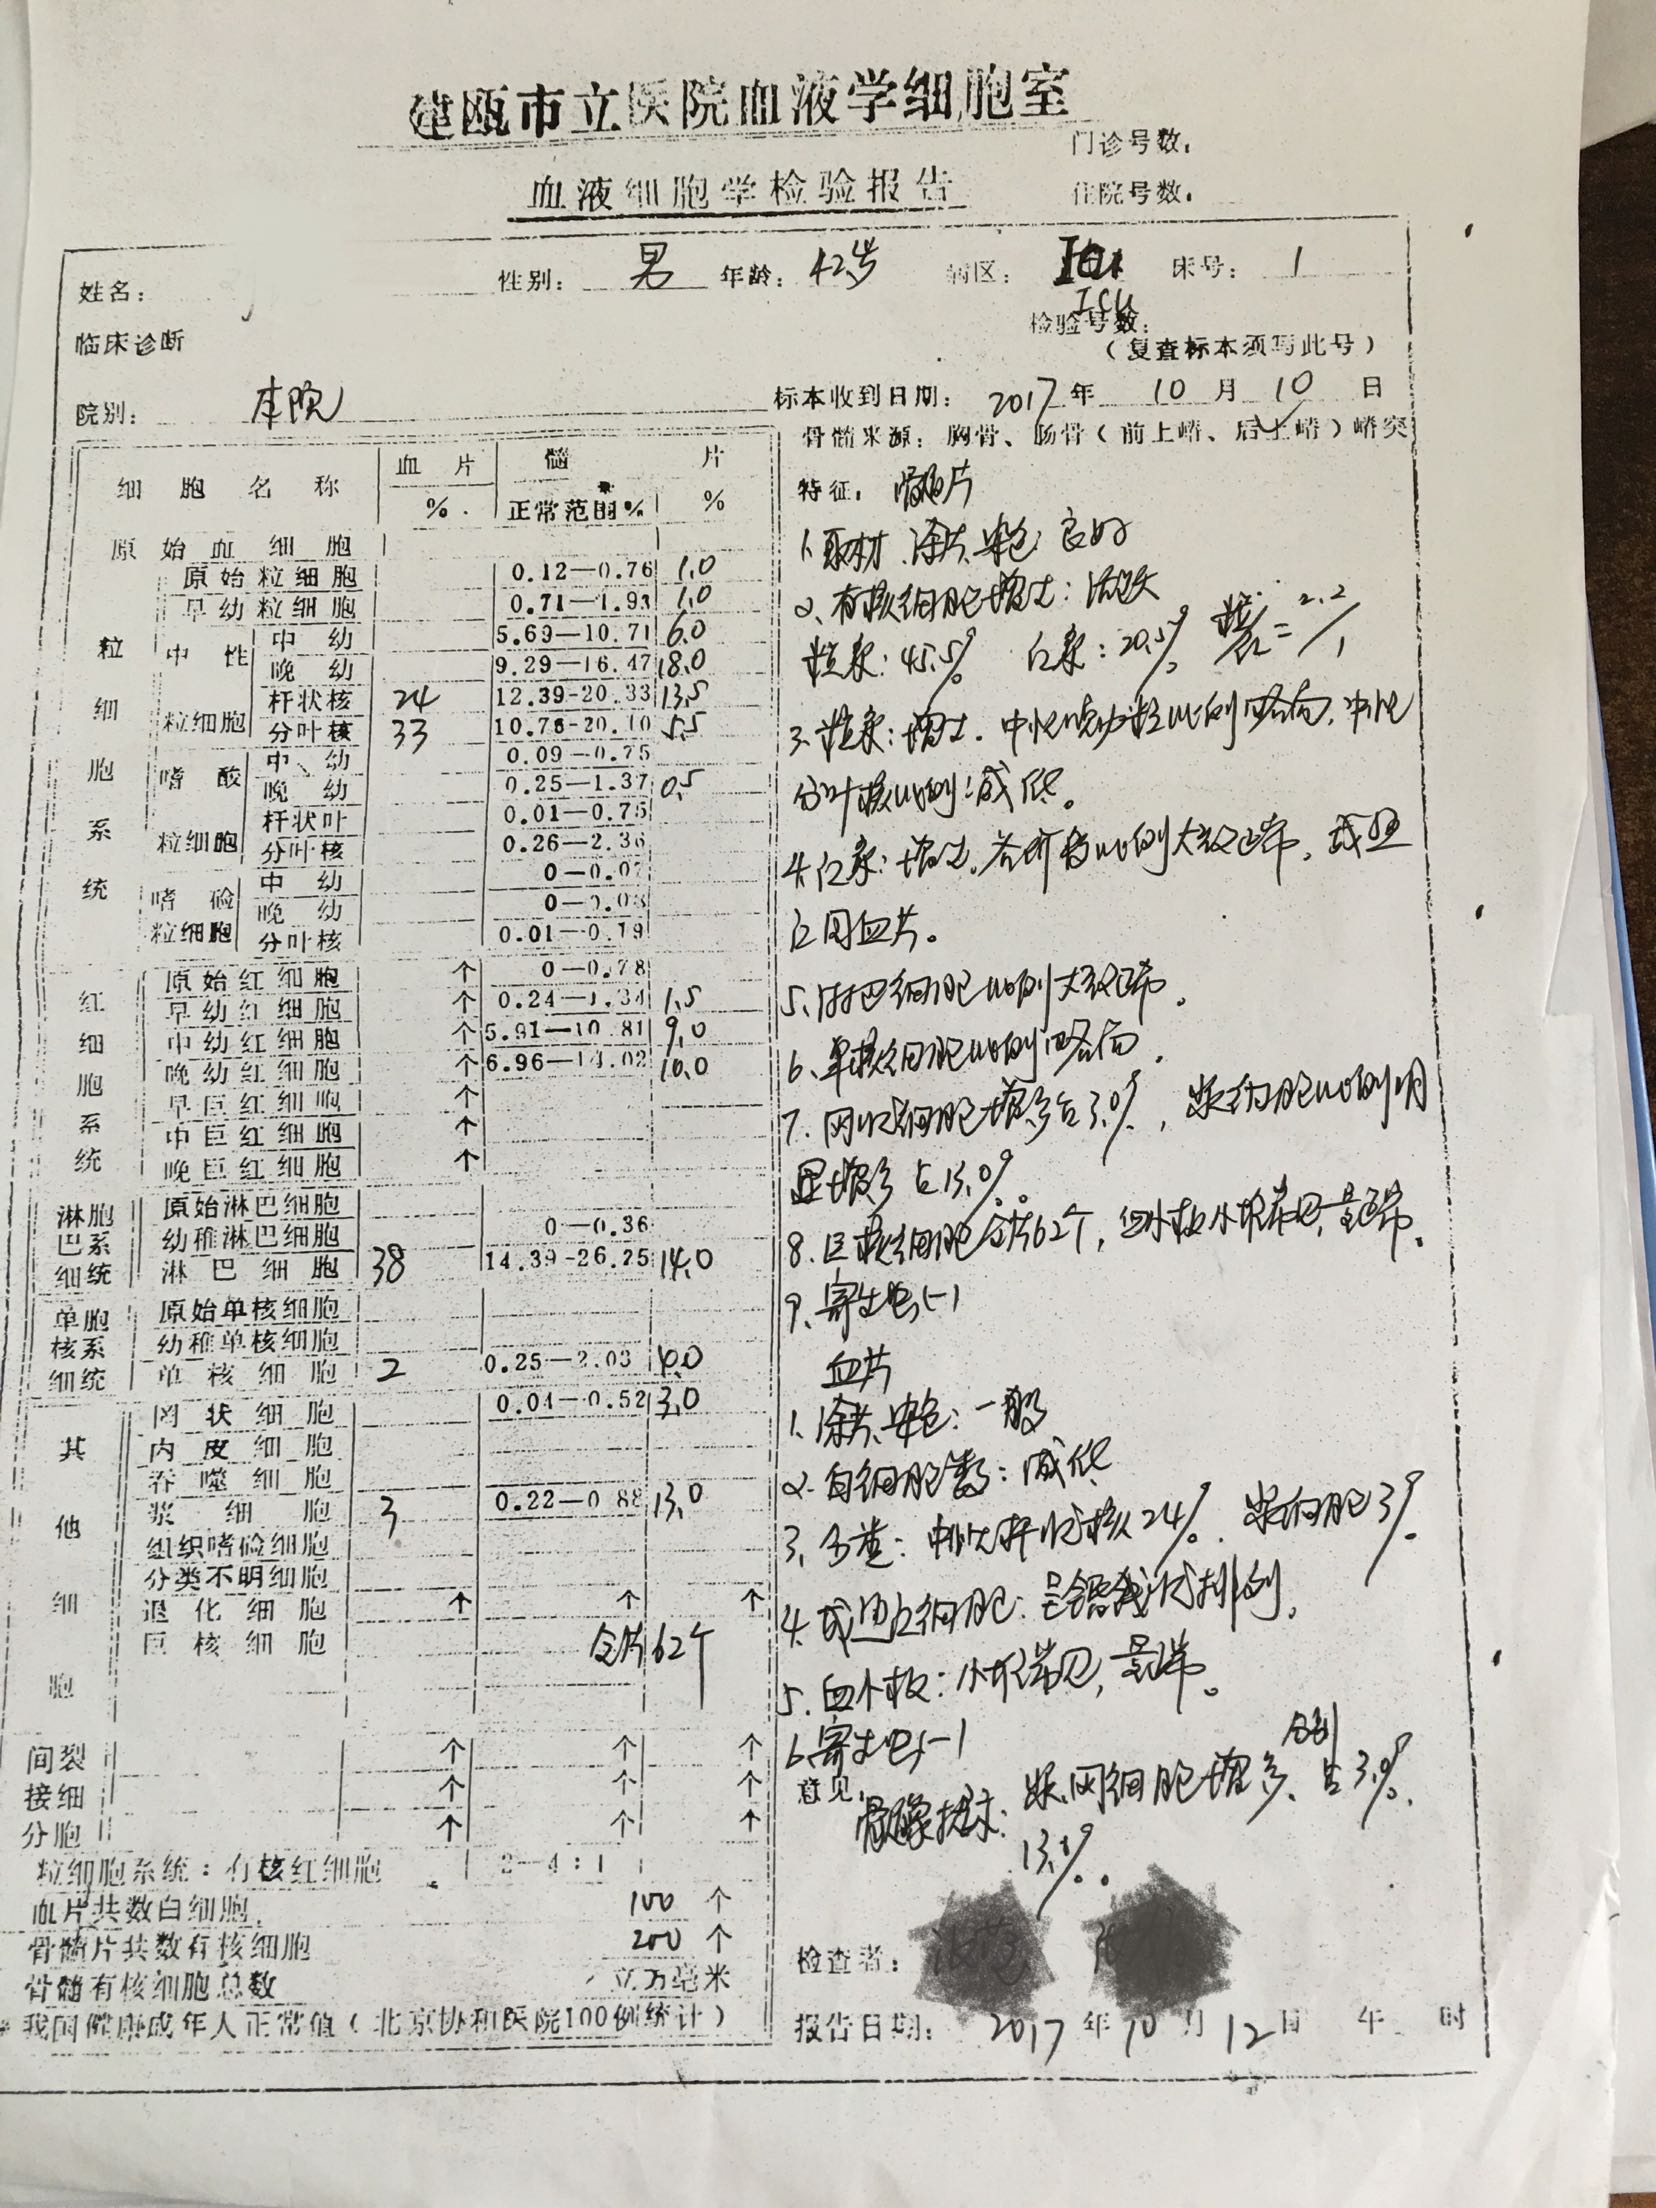 建瓯市立医院血液学细胞室
门诊号数:
血液细胞学检验报告
住院号数:
姓名: 性别: 男 年龄: 42岁 病区: ICU 床号: 1
ICU
临床诊断 检验号数:
(复查标本须写此号)
院别: 本院 标本收到日期: 2017年 10月 10日
骨髓来源: 胸骨、肠骨(前上嵴、后上嵴)嵴突
细胞名称 血片 髓片
% 正常范围% %
原始血细胞
粒细胞系统
原始粒细胞 0.12—0.76 1.0
早幼粒细胞 0.71—1.93 1.0
中性粒细胞
中幼 5.69—10.71 6.0
晚幼 9.29—16.47 18.0
杆状核 24 12.39-20.33 13.5
分叶核 33 10.76-20.10 5.5
嗜酸粒细胞
中幼 0.09—0.75
晚幼 0.25—1.37 0.5
杆状叶 0.01—0.75
分叶核 0.26—2.36
嗜硷粒细胞
中幼 0—0.07
晚幼 0—0.03
分叶核 0.01—0.19
红细胞系统
原始红细胞 个 0—0.78
早幼红细胞 个 0.24—1.34 1.5
中幼红细胞 个 5.91—10.81 9.0
晚幼红细胞 个 6.96—14.02 10.0
早巨红细胞 个
中巨红细胞 个
晚巨红细胞 个
淋巴细胞系统
原始淋巴细胞
幼稚淋巴细胞 0—0.36
淋巴细胞 38 14.39-26.25 14.0
单核细胞系统
原始单核细胞
幼稚单核细胞
单核细胞 2 0.25—2.03 4.0
其他细胞
网状细胞 0.04—0.52 3.0
内皮细胞
吞噬细胞
浆细胞 3 0.22—0.88 13.0
组织嗜硷细胞
分类不明细胞
退化细胞 个 个 个
巨核细胞 全片62个
间接分裂细胞
个 个 个
个 个 个
个 个 个
粒细胞系统:有核红细胞 2—4:1
血片共数白细胞 100 个
骨髓片共数有核细胞 200 个
骨髓有核细胞总数 /立方毫米
*我国健康成年人正常值(北京协和医院100例统计)
特征: 骨髓片
1、取材、涂片、染色:良好
2、有核细胞增生:活跃
粒系:45.5% 红系:20.5% 粒/红=2.2/1
3、粒系:增生.中性晚幼粒比例略高,中性
分叶核比例减低。
4、红系:增生,各阶段比例大致正常,成熟
红同血片。
5、淋巴细胞比例大致正常。
6、单核细胞比例略高.
7、网状细胞增多占3.0%,浆细胞比例明
显增多占13.0%。
8、巨核细胞全片62个,血小板小堆存在,量正常。
9、寄生虫(-)
血片
1、涂片、染色:一般
2、白细胞数:减低
3、分类:中性杆状核24%.浆细胞3%
4、成熟红细胞:呈缗钱状排列.
5、血小板:小堆常见,量正常。
6、寄生虫(-)
意见: 骨髓象提示:浆、网细胞增多、分别占3.0%、
13.0%。
检查者:
报告日期: 2017年10月12日 午 时